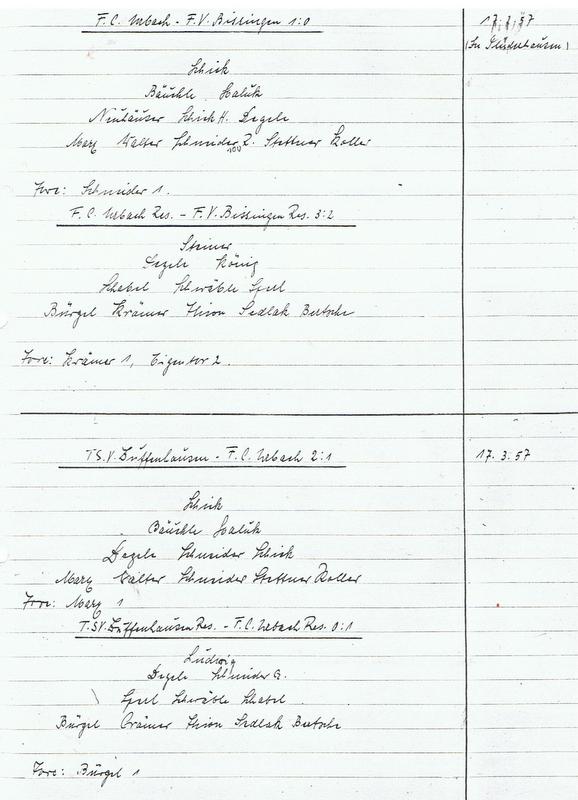 F.C. Urbach - F.V. Bissingen 1:0
17. 3. 57
(In Plüderhausen)
Schick
Bäuchle Haluk
Neuhäuser Schick H. Degele
Marx Walter Schneider Z. Stettner Koller
Tore: Schneider 1.
F.C. Urbach Res. - F.V. Bissingen Res. 3:2
Steiner
Degele König
Schabel Schwäble
Bürgel Krämer Sedlak Bertsche
Tore: Krämer 1, Eigentor 2.
TS.V. Zuffenhausen - F.C. Urbach 2:1
17. 3. 57
Schick
Bäuchle Haluk
Degele Schneider Schick
Marx Walter Schneider Stettner Koller
Tore: Marx 1
T.SV. Zuffenhausen Res. - F.C. Urbach Res. 0:1
Ludwig
Degele Schneider G.
Schwäble Schabel
Bürgel Crämer Sedlak Bertsche
Tore: Bürgel 1